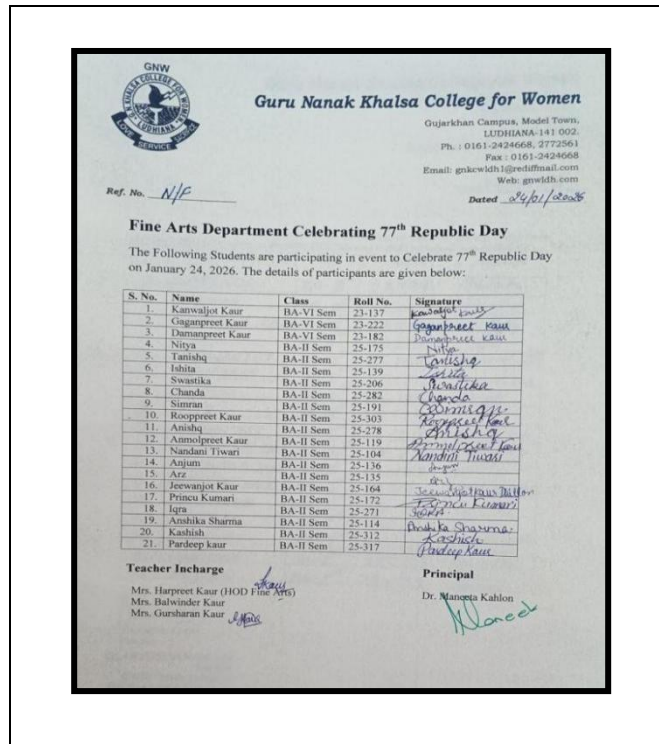 GNW
N KHALSA COLLEGE FOR WOMEN
LUDHIANA
LOVE SERVICE SACRIFICE
Guru Nanak Khalsa College for Women
Gujarkhan Campus, Model Town,
LUDHIANA-141 002.
Ph. : 0161-2424668, 2772561
Fax : 0161-2424668
Email: gnkcwldh1@rediffmail.com
Web: gnwldh.com
Ref. No. N/F
Dated 24/01/2026
Fine Arts Department Celebrating 77th Republic Day
The Following Students are participating in event to Celebrate 77th Republic Day
on January 24, 2026. The details of participants are given below:
S. No. Name Class Roll No. Signature
1. Kanwaljot Kaur BA-VI Sem 23-137 Kanwaljot Kaur
2. Gaganpreet Kaur BA-VI Sem 23-222 Gaganpreet Kaur
3. Damanpreet Kaur BA-VI Sem 23-182 Damanpreet Kaur
4. Nitya BA-II Sem 25-175 Nitya
5. Tanishq BA-II Sem 25-277 Tanishq
6. Ishita BA-II Sem 25-139 Ishita
7. Swastika BA-II Sem 25-206 Swastika
8. Chanda BA-II Sem 25-282 Chanda
9. Simran BA-II Sem 25-191 Simran
10. Rooppreet Kaur BA-II Sem 25-303 Rooppreet Kaur
11. Anishq BA-II Sem 25-278 Anishq
12. Anmolpreet Kaur BA-II Sem 25-119 Anmolpreet Kaur
13. Nandani Tiwari BA-II Sem 25-104 Nandini Tiwari
14. Anjum BA-II Sem 25-136
15. Arz BA-II Sem 25-135
16. Jeewanjot Kaur BA-II Sem 25-164 Jeewanjot Kaur Dhillon
17. Princu Kumari BA-II Sem 25-172 Princu Kumari
18. Iqra BA-II Sem 25-271 Iqra
19. Anshika Sharma BA-II Sem 25-114 Anshika Sharma
20. Kashish BA-II Sem 25-312 Kashish
21. Pardeep kaur BA-II Sem 25-317 Pardeep Kaur
Teacher Incharge
Principal
Mrs. Harpreet Kaur (HOD Fine Arts)
Dr. Maneeta Kahlon
Mrs. Balwinder Kaur
Mrs. Gursharan Kaur